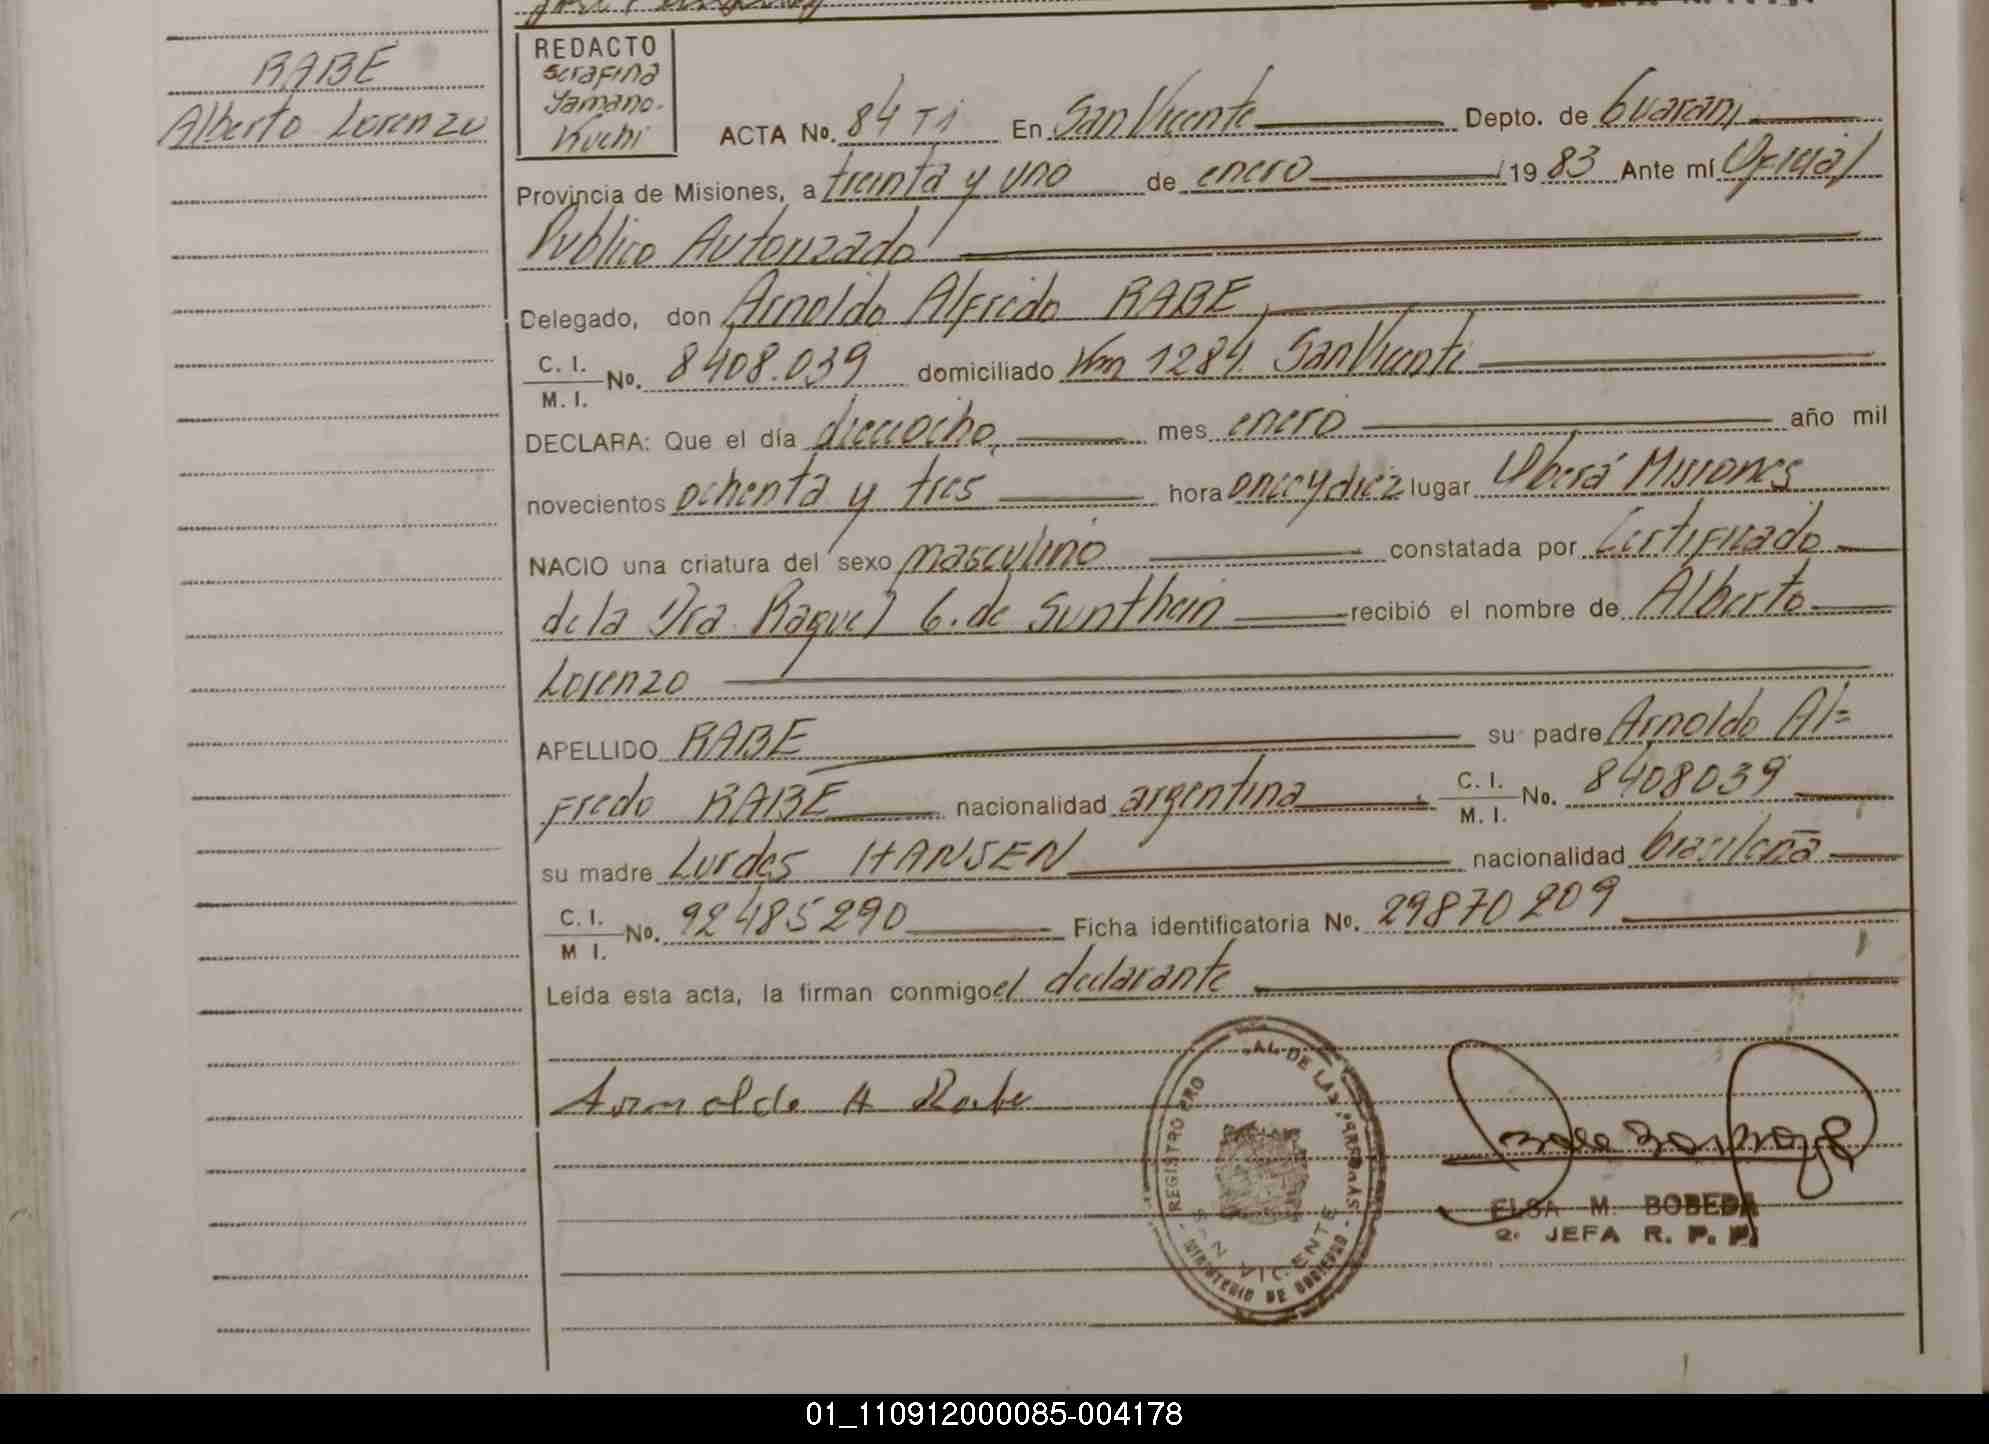 RABE
Alberto Lorenzo
REDACTO
Serafina
Yamano.
Kuchi
ACTA No. 84 T1 En San Vicente Depto. de Guaraní
Provincia de Misiones, a treinta y uno de enero 1983 Ante mí Oficial
Publico Autorizado
Delegado, don Arnoldo Alfredo RABE
C. I.
M. I. No. 8408.039 domiciliado Km 1284 San Vicente
DECLARA: Que el día dieciocho, mes enero año mil
novecientos ochenta y tres hora once y diez lugar Oberá Misiones
NACIO una criatura del sexo masculino constatada por Certificado
de la Dra. Raquel G. de Sunthein recibió el nombre de Alberto
Lorenzo
APELLIDO RABE su padre Arnoldo Al=
fredo RABE nacionalidad argentina C. I.
M. I. No. 8408039
su madre Lurdes HANSEN nacionalidad brasileña
C. I.
M I. No. 92485290 Ficha identificatoria No. 29870209
Leída esta acta, la firman conmigo el declarante
Arnoldo A Rabe
REGISTRO PRO AL DE LAS PERSONAS
SAN VICENTE
MINISTERIO DE GOBIERNO
ELSA M. BOBEDA
2. JEFA R. P. P.
01_110912000085-004178